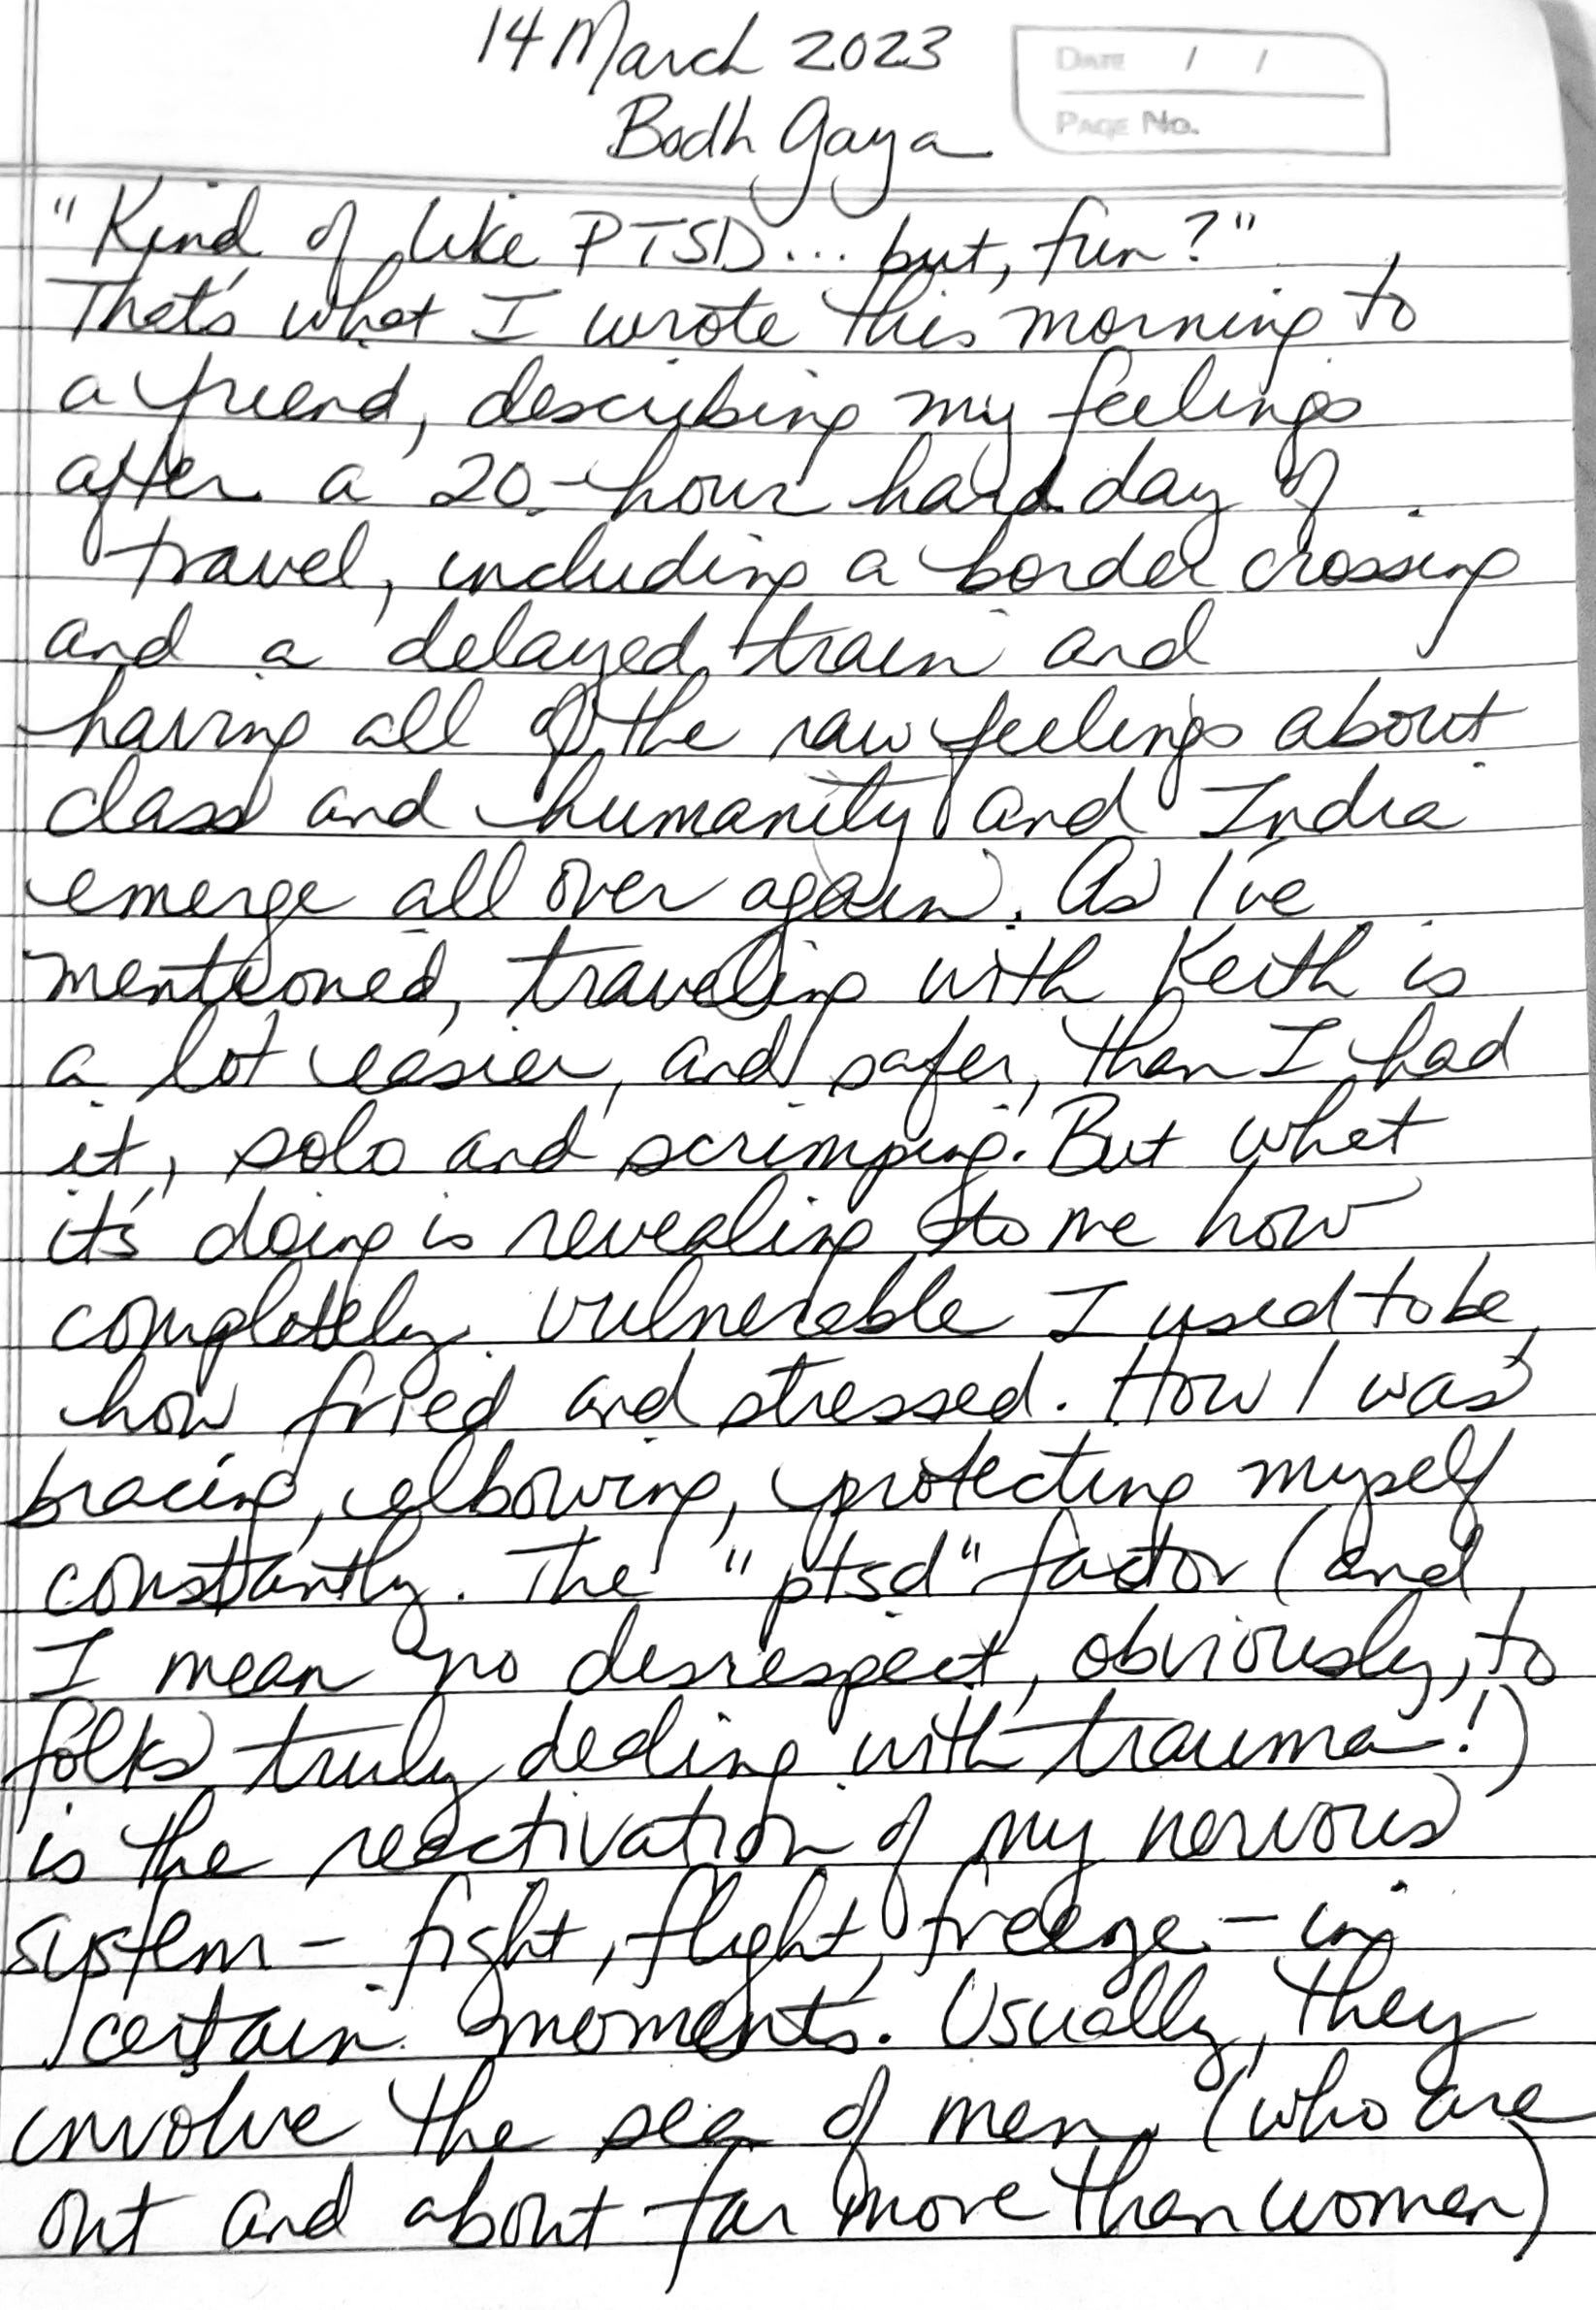 14 March 2023
DATE / /
Bodh Gaya
PAGE No.
"Kind of like PTSD... but, fun?"
That's what I wrote this morning to
a friend, describing my feelings
after a 20-hour hard day of
travel, including a border crossing
and a delayed train and
having all of the raw feelings about
class and humanity and India
emerge all over again. As I've
mentioned, traveling with Keith is
a lot easier, and safer, than I had
it, solo and scrimping. But what
it's doing is revealing to me how
completely vulnerable I used to be,
how fried and stressed. How I was
bracing, elbowing, protecting myself
constantly. The "ptsd" factor (and
I mean no disrespect, obviously, to
folks truly dealing with trauma!)
is the reactivation of my nervous
system - fight, flight, freeze - in
certain moments. Usually, they
involve the sea of men (who are
out and about far more than women)